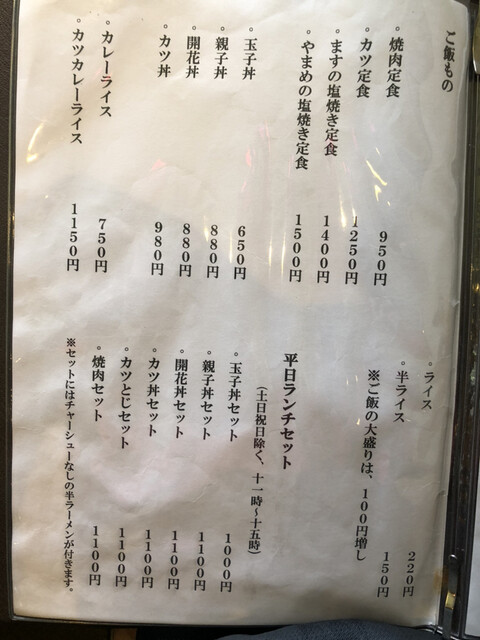 ご飯もの
。焼肉定食 950円
。カツ定食 1250円
。ますの塩焼き定食 1400円
。やまめの塩焼き定食 1500円
。玉子丼 650円
。親子丼 880円
。開花丼 880円
。カツ丼 980円
。カレーライス 750円
。カツカレーライス 1150円
。ライス 220円
。半ライス 150円
※ご飯の大盛りは、100円増し
平日ランチセット
(土日祝日除く、十一時～十五時)
。玉子丼セット 1000円
。親子丼セット 1100円
。開花丼セット 1100円
。カツ丼セット 1100円
。カツとじセット 1100円
。焼肉セット 1100円
※セットにはチャーシューなしの半ラーメンが付きます。